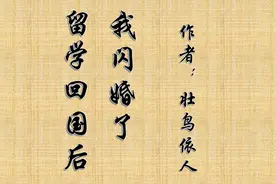 留学回国后
我闪婚了
作者：壮鸟依人